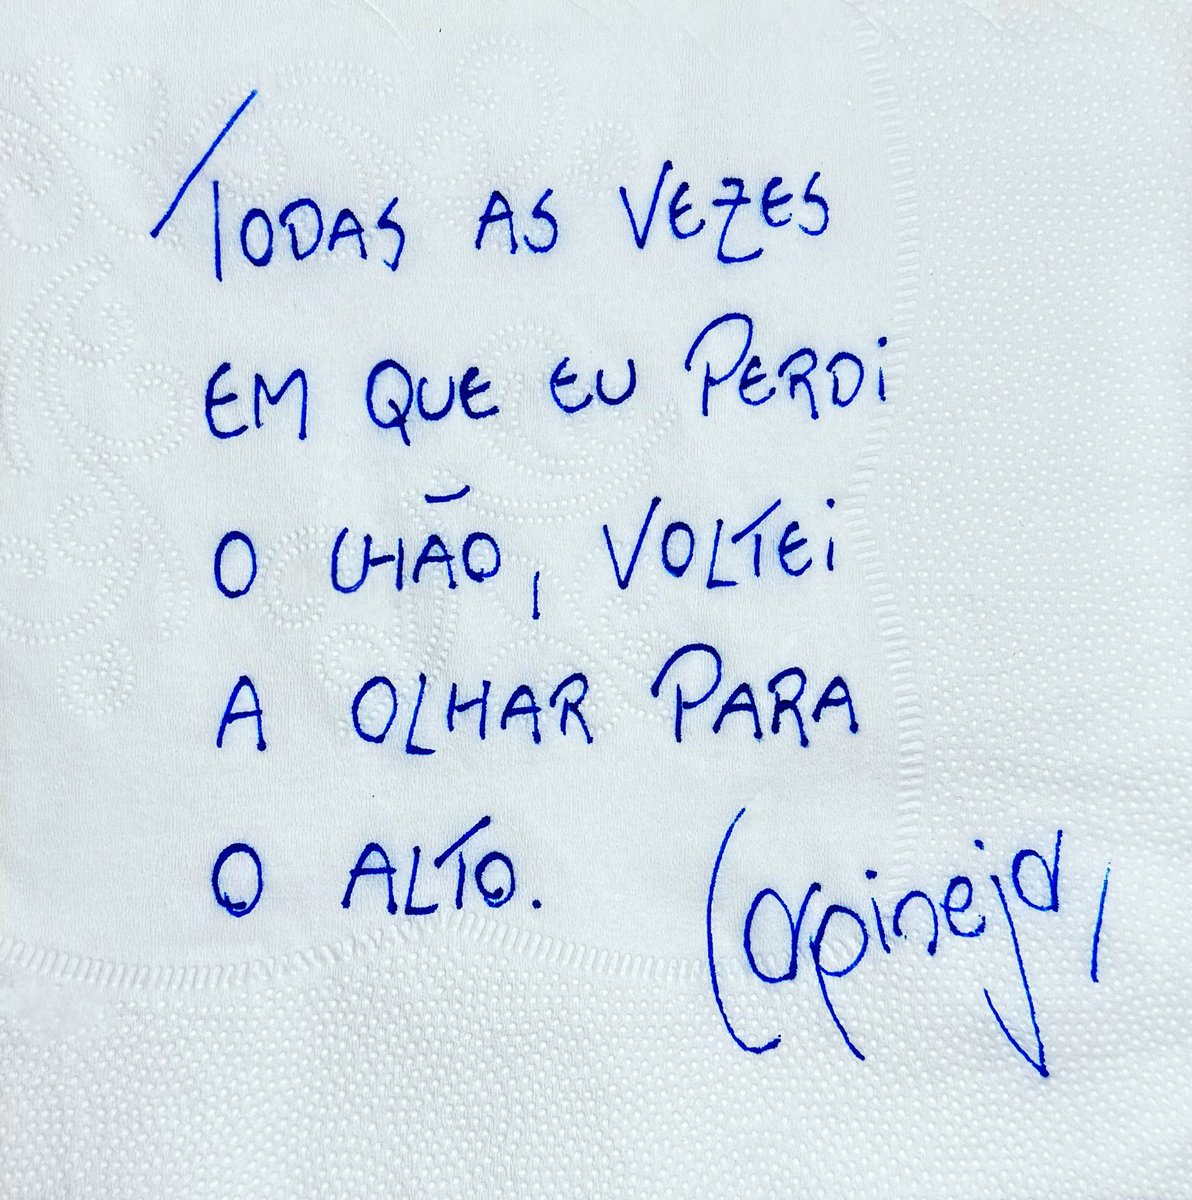 TODAS AS VEZES
EM QUE EU PERDI
O CHÃO, VOLTEI
A OLHAR PARA
O ALTO.
Carpinejar